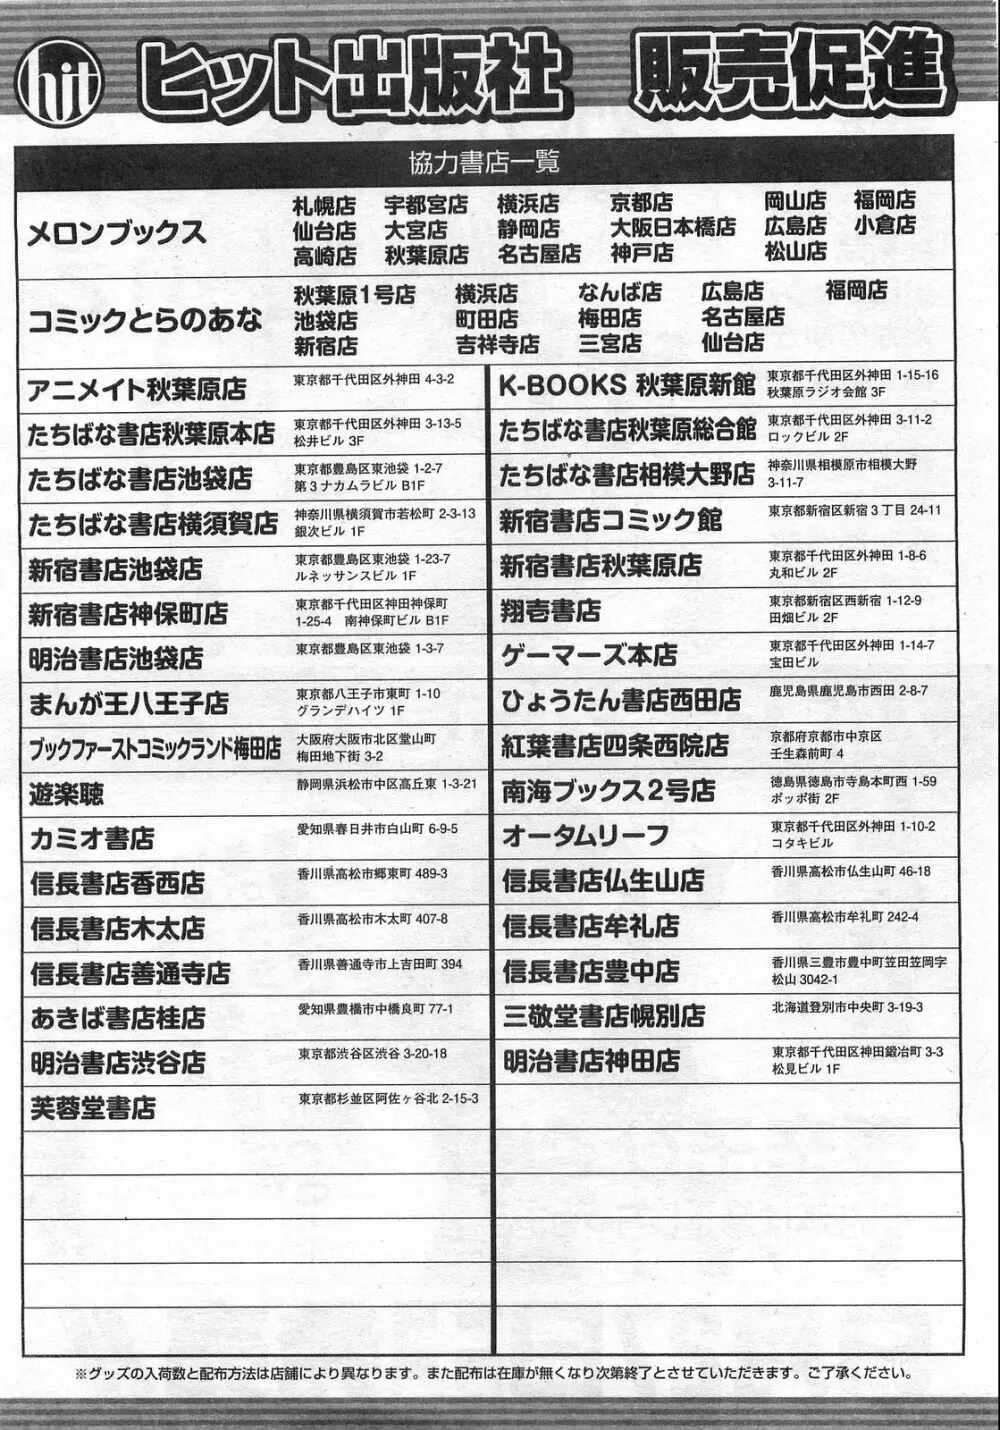 hit ヒット出版社 販売促進
協力書店一覧
メロンブックス
札幌店 宇都宮店 横浜店 京都店 岡山店 福岡店
仙台店 大宮店 静岡店 大阪日本橋店 広島店 小倉店
高崎店 秋葉原店 名古屋店 神戸店 松山店
コミックとらのあな
秋葉原1号店 横浜店 なんば店 広島店 福岡店
池袋店 町田店 梅田店 名古屋店
新宿店 吉祥寺店 三宮店 仙台店
アニメイト秋葉原店 東京都千代田区外神田 4-3-2
たちばな書店秋葉原本店 東京都千代田区外神田 3-13-5
松井ビル 3F
たちばな書店池袋店 東京都豊島区東池袋 1-2-7
第3ナカムラビル B1F
たちばな書店横須賀店 神奈川県横須賀市若松町 2-3-13
銀次ビル 1F
新宿書店池袋店 東京都豊島区東池袋 1-23-7
ルネッサンスビル 1F
新宿書店神保町店 東京都千代田区神田神保町
1-25-4 南神保町ビル B1F
明治書店池袋店 東京都豊島区東池袋 1-3-7
まんが王八王子店 東京都八王子市東町 1-10
グランデハイツ 1F
ブックファーストコミックランド梅田店 大阪府大阪市北区堂山町
梅田地下街 3-2
遊楽聴 静岡県浜松市中区高丘東 1-3-21
カミオ書店 愛知県春日井市白山町 6-9-5
信長書店香西店 香川県高松市郷東町 489-3
信長書店木太店 香川県高松市木太町 407-8
信長書店善通寺店 香川県善通寺市上吉田町 394
あきば書店桂店 愛知県豊橋市中橋良町 77-1
明治書店渋谷店 東京都渋谷区渋谷 3-20-18
芙蓉堂書店 東京都杉並区阿佐ヶ谷北 2-15-3
K-BOOKS 秋葉原新館 東京都千代田区外神田 1-15-16
秋葉原ラジオ会館 3F
たちばな書店秋葉原総合館 東京都千代田区外神田 3-11-2
ロックビル 2F
たちばな書店相模大野店 神奈川県相模原市相模大野
3-11-7
新宿書店コミック館 東京都新宿区新宿3丁目 24-11
新宿書店秋葉原店 東京都千代田区外神田 1-8-6
丸和ビル 2F
翔壱書店 東京都新宿区西新宿 1-12-9
田畑ビル 2F
ゲーマーズ本店 東京都千代田区外神田 1-14-7
宝田ビル
ひょうたん書店西田店 鹿児島県鹿児島市西田 2-8-7
紅葉書店四条西院店 京都府京都市中京区
壬生森前町 4
南海ブックス2号店 徳島県徳島市寺島本町西 1-59
ポッポ街 2F
オータムリーフ 東京都千代田区外神田 1-10-2
コタキビル
信長書店仏生山店 香川県高松市仏生山町 46-18
信長書店牟礼店 香川県高松市牟礼町 242-4
信長書店豊中店 香川県三豊市豊中町笠田笠岡字
松山 3042-1
三敬堂書店幌別店 北海道登別市中央町 3-19-3
明治書店神田店 東京都千代田区神田鍛冶町 3-3
松見ビル 1F
※グッズの入荷数と配布方法は店舗により異なります。また配布は在庫が無くなり次第終了とさせていただきます。ご了承ください。